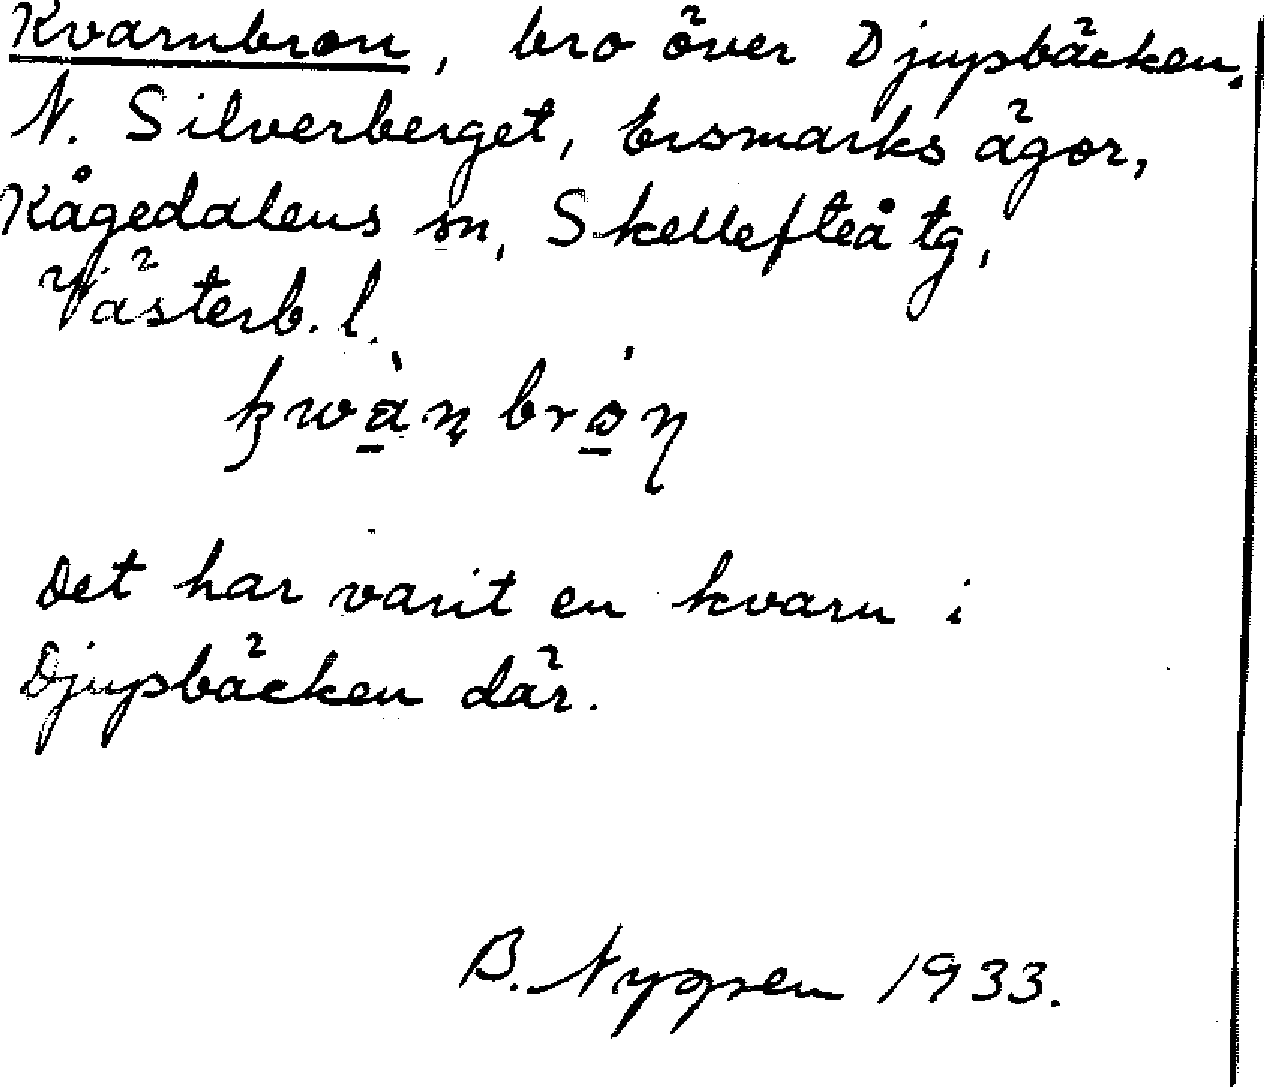 Kvarnbron, bro över Djupbäcken.
N. Silverberget, Ersmarks ägor,
Kågedalens sn, Skellefteå tg,
Västerb. l.
Det har varit en kvarn i
Djupbäcken där.
B. Nygren 1933.